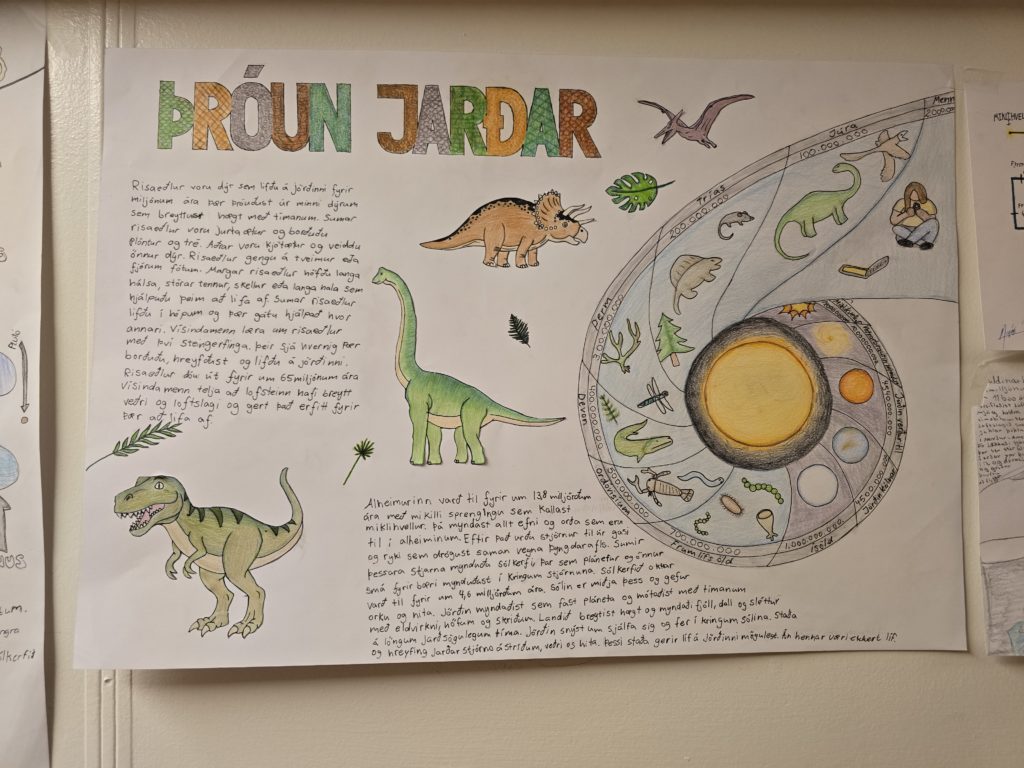 ÞRÓUN JARÐAR
Risaeðlur voru dýr sem lifðu á jörðinni fyrir
miljónum ára þær þróuðust úr minni dýrum
sem breyttust hægt með tímanum. Sumar
risaeðlur voru Jurtaætur og borðuðu
plöntur og tré. Aðrar voru kjötætur og veiddu
önnur dýr. Risaeðlur gengu á tveimur eða
fjórum fótum. Margar risaeðlur höfðu langa
hálsa, stórar tennur, skellur eða langa hala sem
hjálpuðu þeim að lifa af. Sumar risaeðlur
lifðu í hópum og þær gátu hjálpað hvor
annari. Vísindamenn læra um risaeðlur
með því steingerfinga. þeir sjá hvernig þær
borðuðu, hreyfðust og lifðu á jörðinni.
Risaeðlur dóu út fyrir um 65 miljónum ára
Vísindamenn telja að lofsteinn hafi breytt
veðri og loftslagi og gert það erfitt fyrir
þær að lifa af.
Alheimurinn varð til fyrir um 13,8 milljörðum
ára með mikilli sprengingu sem kallast
miklihvellur. Þá myndast allt efni og orða sem eru
til í alheiminum. Eftir það urðu stjörnur til úr gasi
og ryki sem drógust saman vegna þyngdarafls. Sumir
þessara stjarna mynduðu sólkerfi þar sem plánetur og önnur
smá fyrirbæri mynduðust í kringum stjörnuna. Sólkerfið okkar
varð til fyrir um 4,6 milljörðum ára. Sólin er miðja þess og gefur
orku og hita. Jörðin myndaðist sem fast pláneta og mótaðist með tímanum
með eldvirkni, höfum og skriðum. Landið breytist hægt og myndaði fjöll, dali og sléttur
á löngum jarðsögulegum tíma. Jörðin snýst um sjálfa sig og fer í kringum sólina. Staða
og hreyfing jarðar stjórna ástriðum, veðri og hita. Þessi staða gerir líf á Jörðinni mögulegt. Án hennar væri ekkert líf.
Menn
Júra
100.000.000
Trías
200.000.000
Perm
300.000.000
400.000.000
Devon
Ordóvísíum
Framlífs öld
1.000.000.000
Ísöld
4500.000.000
Jörðin Kólnar
Plúdó